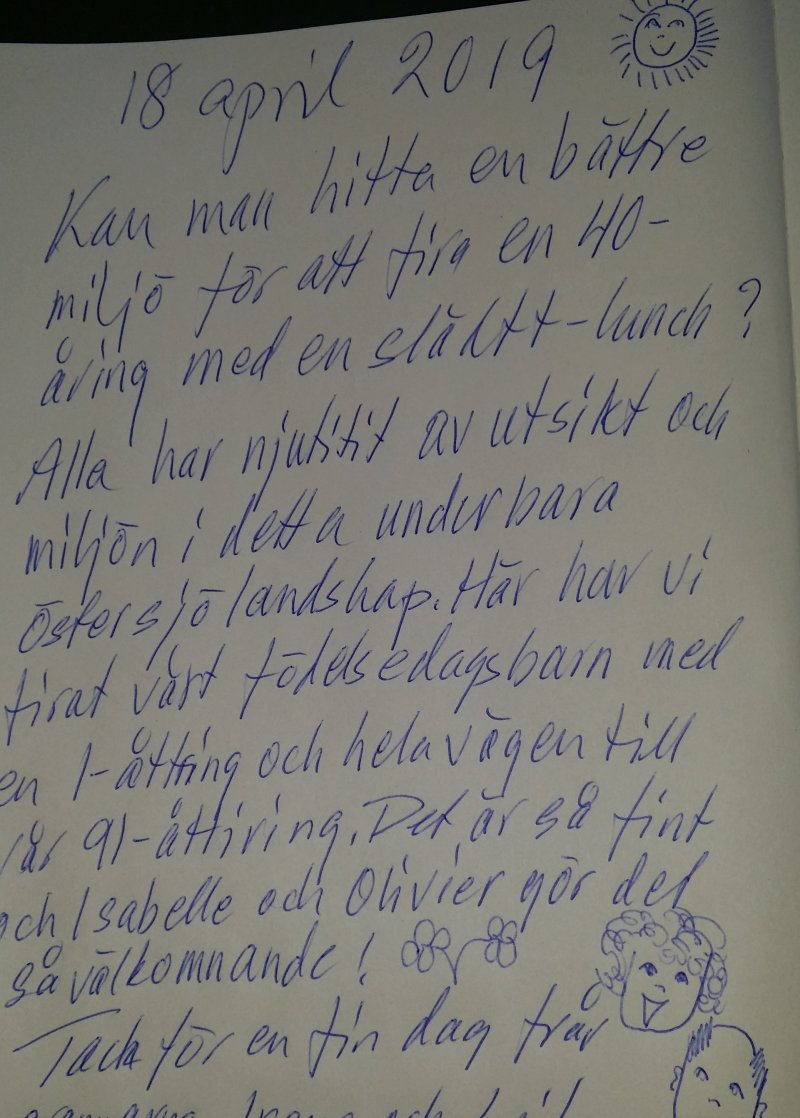 18 april 2019
Kan man hitta en bättre
miljö för att fira en 40-
åring med en släktt-lunch?
Alla har njutitit av utsikt och
miljön i detta underbara
östersjölandskap. Här har vi
firat vårt födelsedagsbarn med
en 1-åttring och hela vägen till
vår 91-åttiring. Det är så fint
och Isabelle och Olivier gör det
så välkomnande!
Tack för en fin dag från
och